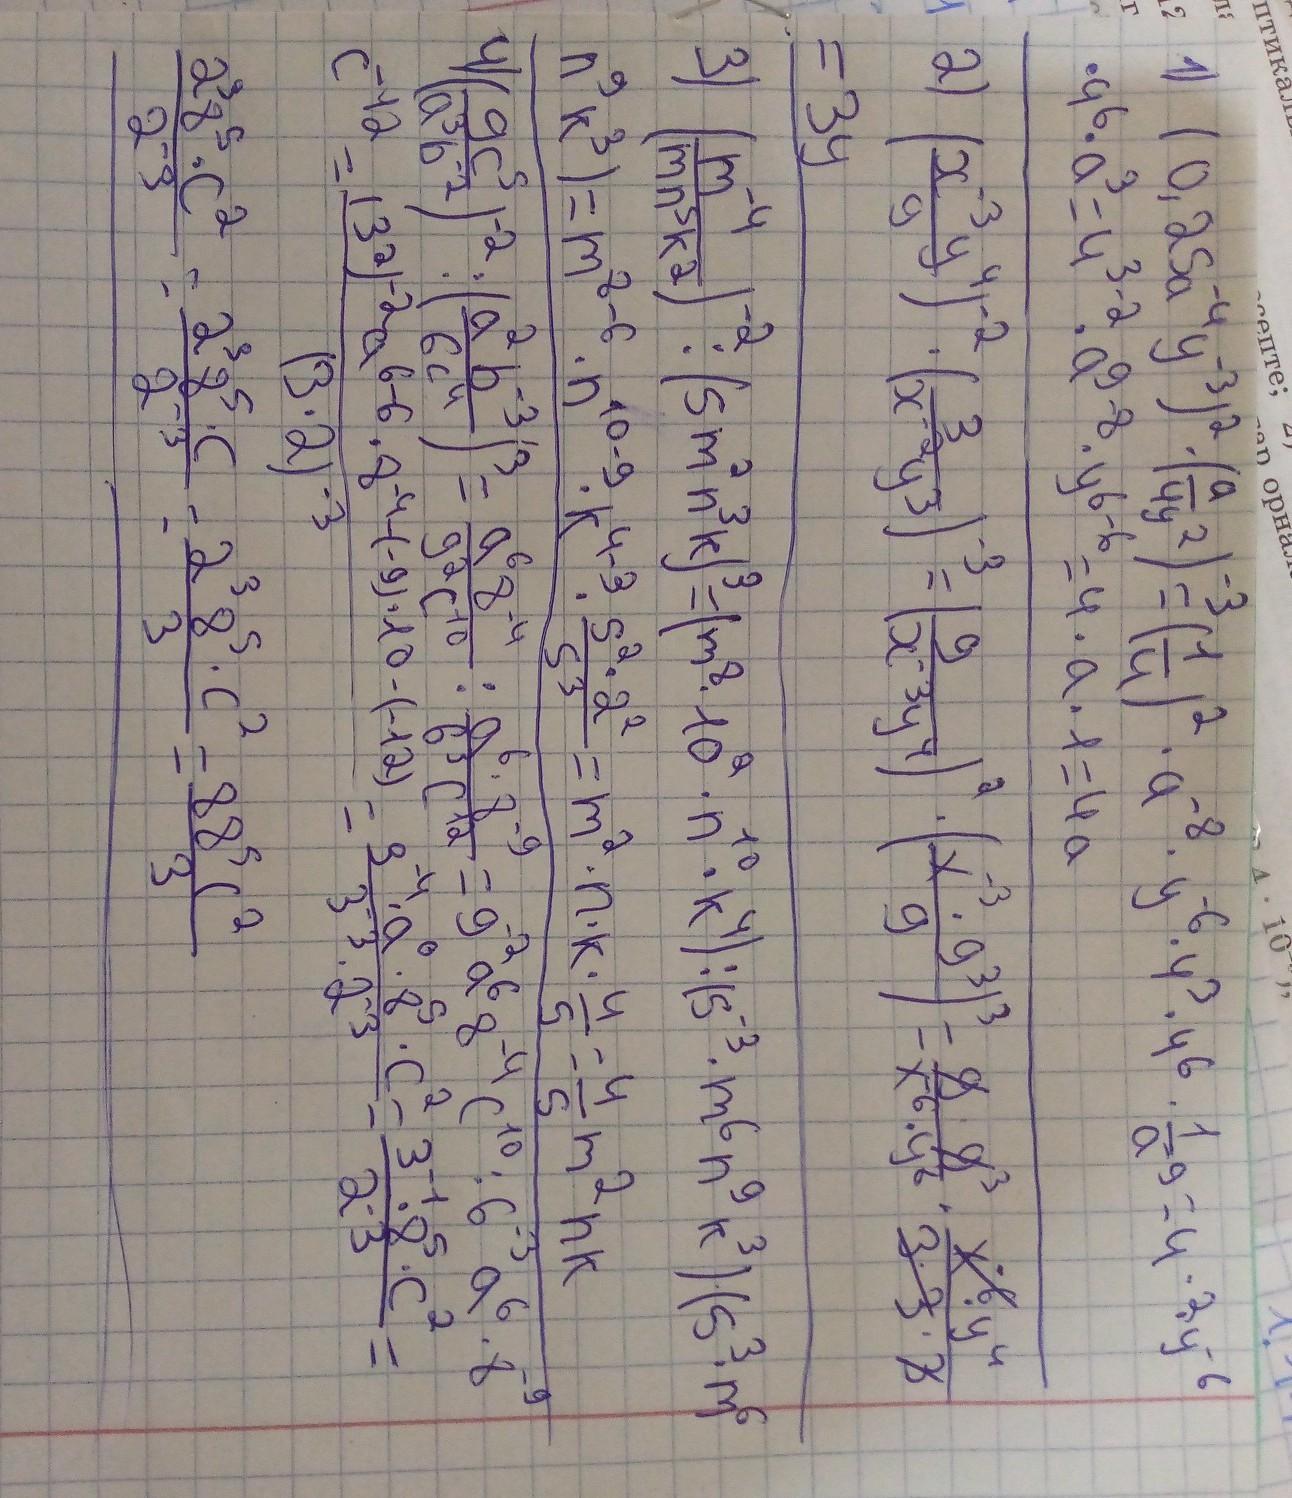 1) (0,25a^-4 y^-3)^2 · (a/4y^2)^-3 = (1/4)^2 · a^-8 · y^-6 · 4^3 · y^6 · 1/a^9 = 4 · 2y^-6
· y^6 · a^3 = 4^3-2 · a^9-8 · y^6-6 = 4 · a · 1 = 4a
2) (x^-3 y^4/9)^-2 · (3/x^-2 y^3)^-3 = (9/x^-3 y^4)^2 · (x^-3 · 9^3/9)^3 =
= 3y
3) (m^-4/mn^5k^2)^-2 : (5m^2n^3k)^3 = (m^8 · 10^2 · n^10 · k^4) : (5^-3 · m^6n^9k^3) · (5^3 · m^6
n^9k^3) = m^8-6 · n^10-9 · k^4-3 · 5^2·2^2/5^3 = m^2 · n · k · 4/5 = 4/5 m^2nk
4) (9c^5/a^3b^-2)^-2 : (a^2b^-3/6c^4)^3 = a^6 8^-4/9^2c^10 : a^6 · 8^-9/6^3c^12 = 9^-2 a^6 8^-4 c^10 : 6^-3 a^6 · 8^-9
c^-12 = (3^2)^-2 a^6-6 · 8^-4-(-9) · 10-(-12)/(3·2)^-3 = 3^-4 · a^0 · 8^5 · c^2/3^-3 · 2^-3 = 3^-1 · 8^5 · c^2/2^-3 =
2^3 8^5 · c^2/2^-3 = 2^3 8^5 · c/2^-3 = 2^3 8^5 · c^2/3 = 88^5c^2/3